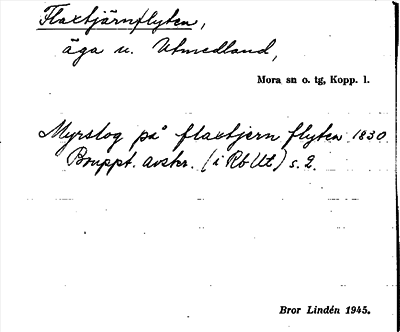 Flaxtjärnflyten,
äga u. Utmedland,
Mora sn o. tg, Kopp. l.
Myrslog på flaxtjern flyten 1830
Bouppt. avskr. (i Rb Ut) s. 2.
Bror Lindén 1945.